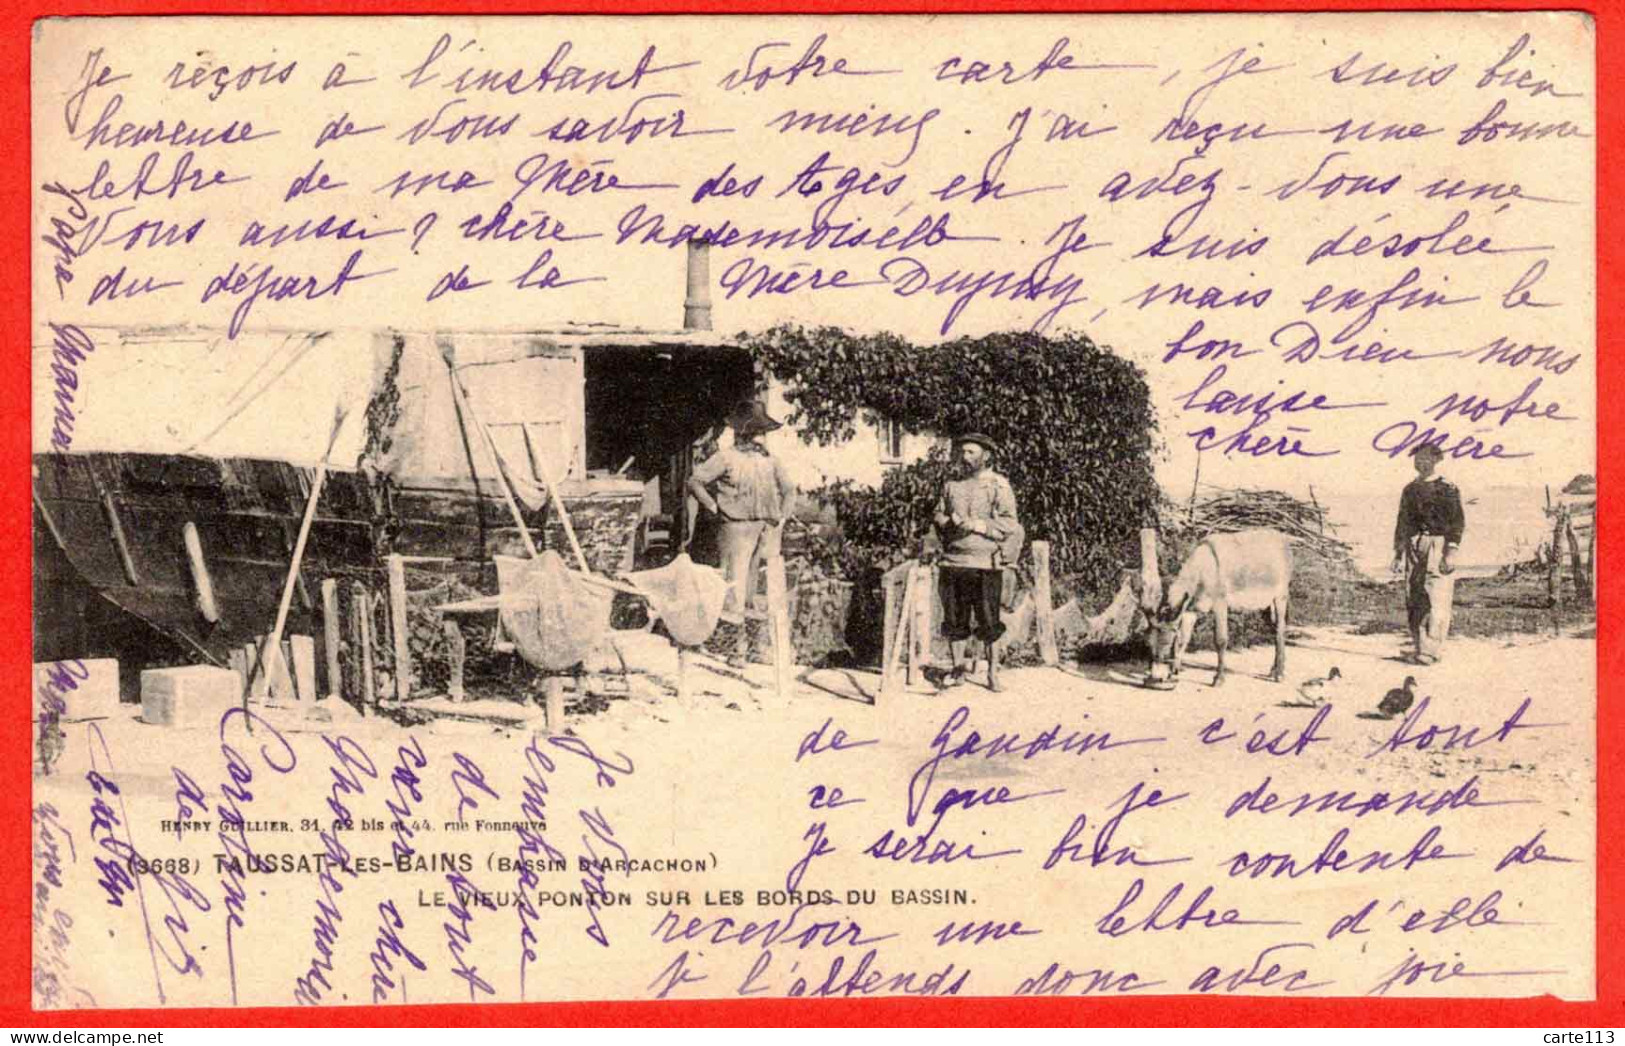 Je reçois à l'instant votre carte, je suis bien
heureuse de vous savoir mieux. J'ai reçu une bonne
lettre de ma Mère des Ages, en avez-vous une,
Vous aussi ? chère Mademoiselle. Je suis désolée
du départ de la Mère Dupuy, mais enfin le
bon Dieu nous
laisse notre
chère Mère
de Gaudin c'est tout
ce que je demande
Je serai bien contente de
recevoir une lettre d'elle
je l'attends donc avec joie
Je vous
embrasse
de tout
chère
Cartine
de
Papa Maman
HENRY GUILLIER, 31, 42 bis et 44, rue Fonneuve
(3668) TAUSSAT-LES-BAINS (BASSIN D'ARCACHON)
LE VIEUX PONTON SUR LES BORDS DU BASSIN.
carte113